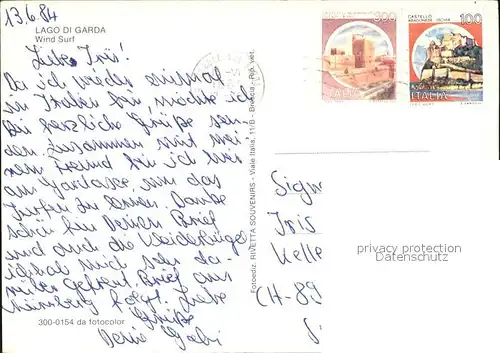 13.6.84
LAGO DI GARDA
Wind Surf
Liebe Iris!
Da ich wieder einmal
in Italien bin, möchte ich
Dir herzliche Grüße sen-
den. Zusammen mit mei-
nem Freund bin ich hier
am Gardasee, um das
Surfen zu lernen. Danke
schön für Deinen Brief
und auch die Kleiderbügel
ich hab mich sehr da-
rüber gefreut. Brief aus
Nürnberg folgt. Liebe
Grüße
Deine Gabi
300-0154 da fotocolor
Fotoediz. RIVETTA SOUVENIRS - Viale Italia, 11/B - Brescia - Rip. viet.
300
ITALIA
CASTELLO
100
ITALIA
Signo
Iris
Kelle
CH-89
privacy protection
Datenschutz